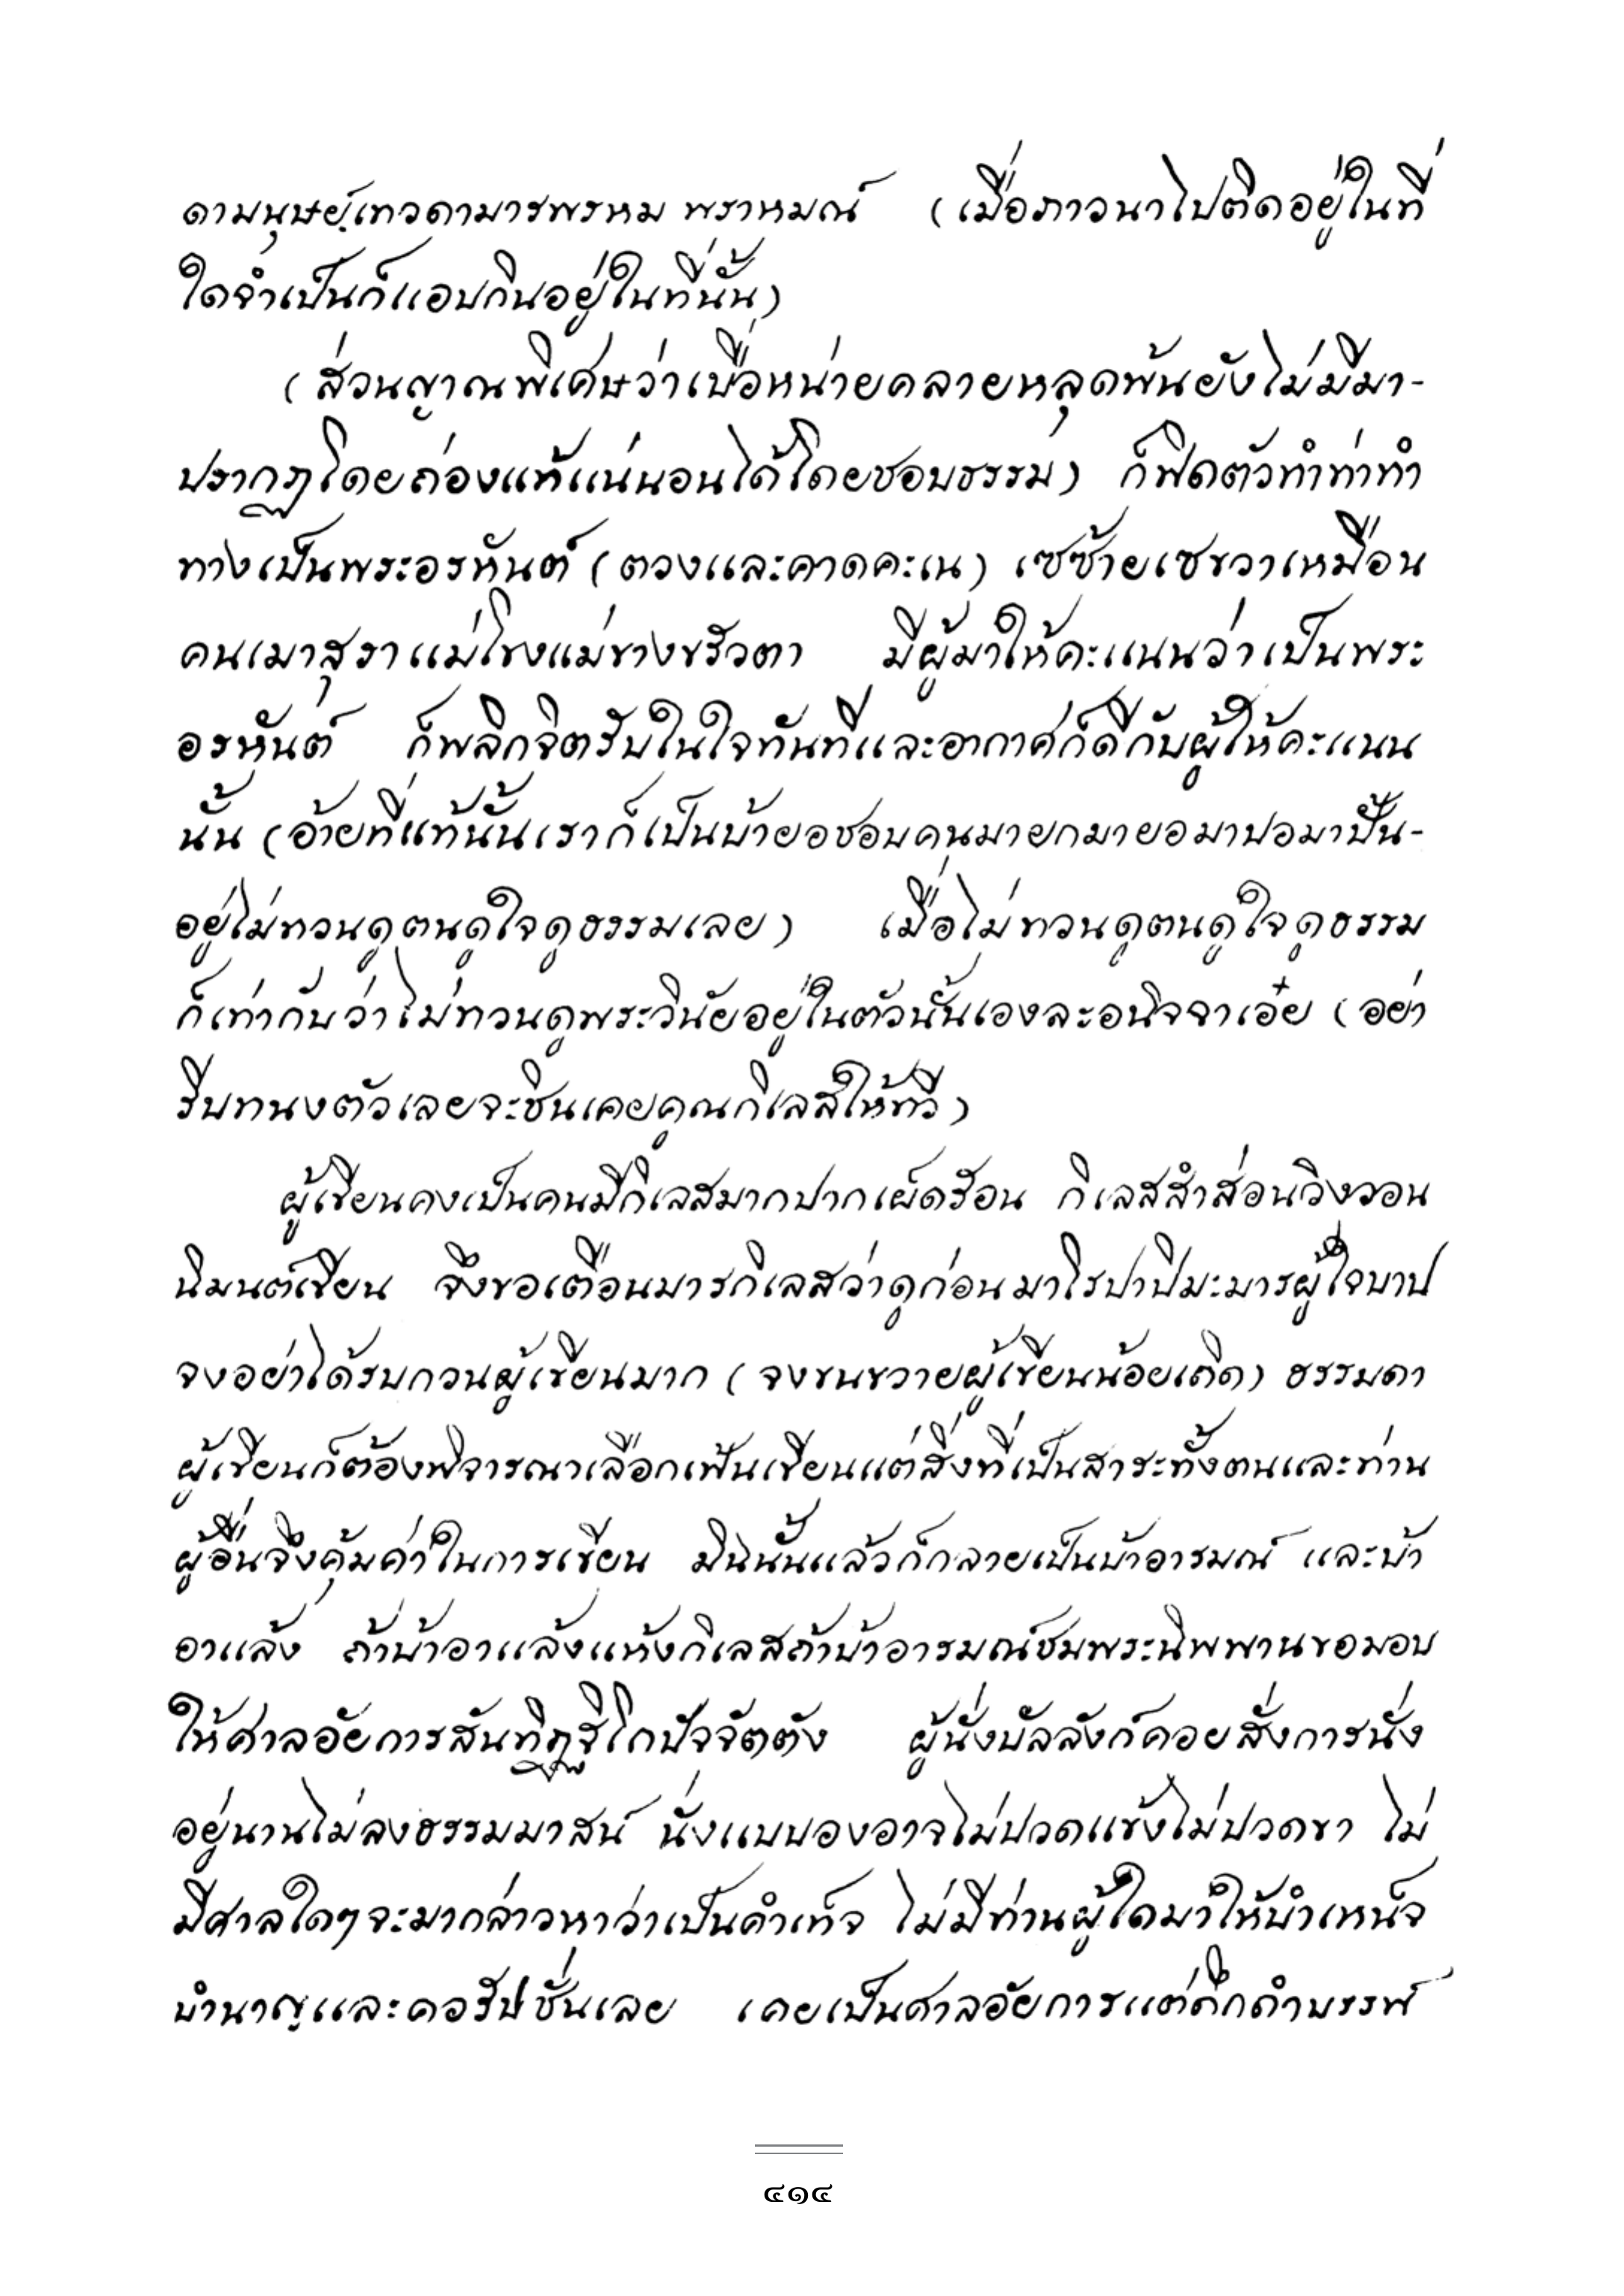 ดามนุษย์เทวดามารพรหม พราหมณ์ (เมื่อภาวนาไปติดอยู่ในที่
ใดจำเป็นก็แอบกินอยู่ในที่นั้น)
(ส่วนญาณพิเศษว่าเบื่อหน่ายคลายหลุดพ้นยังไม่มีมา-
ปรากฏโดยถ่องแท้แน่นอนได้โดยชอบธรรม) ก็ฟิตตัวทำท่าทำ
ทางเป็นพระอรหันต์ (ตวงและคาดคะเน) เซซ้ายเซขวาเหมือน
คนเมาสุราแม่โขงแม่ขางขรัวตา มีผู้มาให้คะแนนว่าเป็นพระ
อรหันต์ ก็พลิกจิตรับในใจทันทีและอากาศก็ดีกับผู้ให้คะแนน
นั้น (อ้ายที่แท้นั้นเราก็เป็นบ้ายอชอบคนมายกมายอมาปอมาปั้น-
อยู่ไม่ทวนดูตนดูใจดูธรรมเลย) เมื่อไม่ทวนดูตนดูใจดูธรรม
ก็เท่ากับว่าไม่ทวนดูพระวินัยอยู่ในตัวนั้นเองละอนิจจาเอ๋ย (อย่า
รีบทนงตัวเลยจะชินเคยคูณกิเลสให้ทวี)
ผู้เขียนคงเป็นคนมีกิเลสมากปากเผ็ดร้อน กิเลสสำส่อนวิงวอน
นิมนต์เขียน จึงขอเตือนมารกิเลสว่าดูก่อนมาโรปาปิมะมารผู้ใจบาป
จงอย่าได้รบกวนผู้เขียนมาก (จงขนขวายผู้เขียนน้อยเถิด) ธรรมดา
ผู้เขียนก็ต้องพิจารณาเลือกเฟ้นเขียนแต่สิ่งที่เป็นสาระทั้งตนและท่าน
ผู้อื่นจึงคุ้มค่าในการเขียน มิน้นั้นแล้วก็กลายเป็นบ้าอารมณ์ และบ้า
อาแล้ง ถ้าบ้าอาแล้งแห้งกิเลสถ้าบ้าอารมณ์ชมพระนิพพานขอมอบ
ให้ศาลอัยการสันทิฏฐิโกปัจจัตตัง ผู้นั่งบัลลังก์คอยสั่งการนั่ง
อยู่นานไม่ลงธรรมมาสน์ นั่งแบบองอาจไม่ปวดแข้งไม่ปวดขา ไม่
มีศาลใดๆจะมากล่าวหาว่าเป็นคำเท็จ ไม่มีท่านผู้ใดมาให้บำเหน็จ
บำนาญและคอรัปชั่นเลย เคยเป็นศาลอัยการแต่ดึกดำบรรพ์
๔๑๔